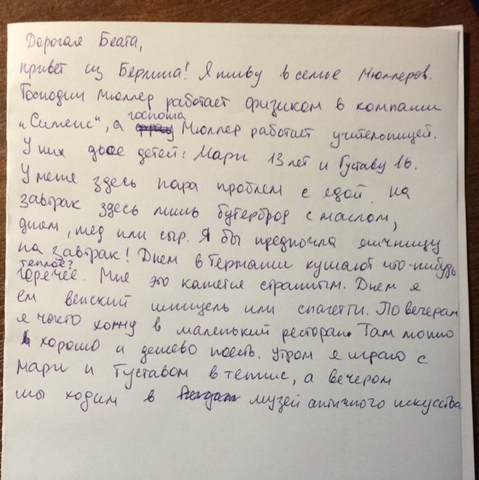 Дорогая Беата,
привет из Берлина! Я живу в семье Мюллеров.
Господин Мюллер работает физиком в компании
госпожа
„Сименс“, а Мюллер работает учительницей.
У них двое детей: Мари 13 лет и Густаву 16.
У меня здесь пара проблем с едой. На
завтрак здесь лишь бутерброд с маслом,
джем, мед или сыр. Я бы предпочла яичницу
на завтрак! Днем в Германии кушают что-нибудь
теплое?
горячее. Мне это кажется странным. Днем я
ем венский шницель или спагетти. По вечерам
я часто хожу в маленький ресторан. Там можно
хорошо и дешево поесть. Утром я играю с
Мари и Густавом в теннис, а вечером
мы ходим в музей античного искусства